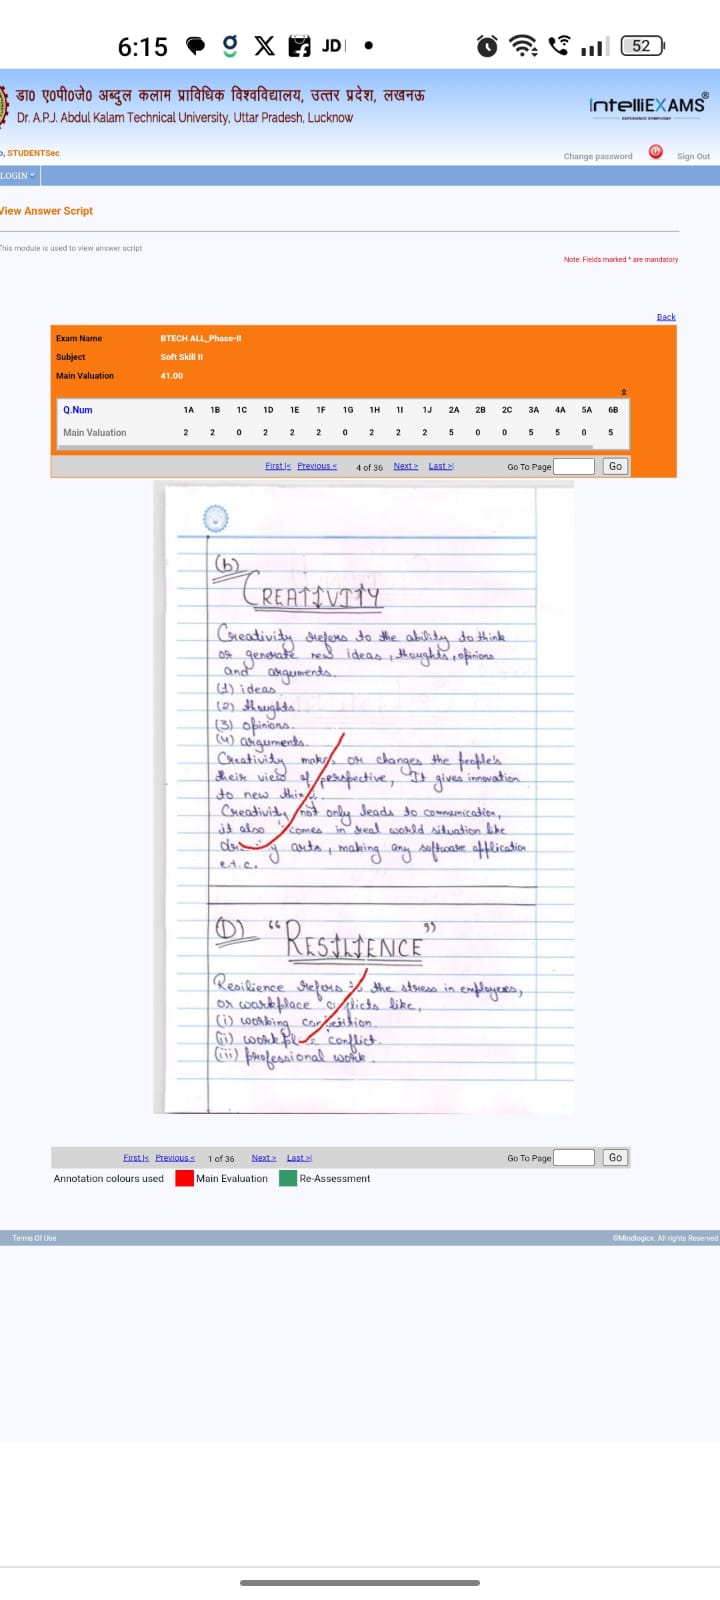 6:15
JD
52
डा0 ए०पी०जे० अब्दुल कलाम प्राविधिक विश्वविद्यालय, उत्तर प्रदेश, लखनऊ
Dr. A.P.J. Abdul Kalam Technical University, Uttar Pradesh, Lucknow
IntelliEXAMS
o, STUDENTSec
Change password
Sign Out
LOGIN
View Answer Script
This module is used to view answer script
Note: Fields marked * are mandatory
Back
Exam Name BTECH ALL_Phase-II
Subject Soft Skill II
Main Valuation 41.00
Q.Num 1A 1B 1C 1D 1E 1F 1G 1H 1I 1J 2A 2B 2C 3A 4A 5A 6B
Main Valuation 2 2 0 2 2 2 0 2 2 2 5 0 0 5 5 0 5
First|< Previous < 4 of 36 Next > Last >| Go To Page Go
(b)
CREATIVITY
Creativity refers to the ability to think
or generate new ideas, thoughts, opinions
and arguments.
(1) ideas
(2) thoughts.
(3) opinions.
(4) arguments.
Creativity makes or changes the people's
their view of perspective, It gives innovation
to new
Creativity not only leads to communication,
it also comes in real world situation like
arts, making any software application
e.t.c.
(D) "RESILIENCE"
Resilience refers to the stress in employees,
or workplace conflicts like,
(i) working
(ii) conflict.
(iii) professional work.
First|< Previous < 1 of 36 Next > Last >| Go To Page Go
Annotation colours used Main Evaluation Re-Assessment
Terms Of Use
©Mindlogicx. All rights Reserved